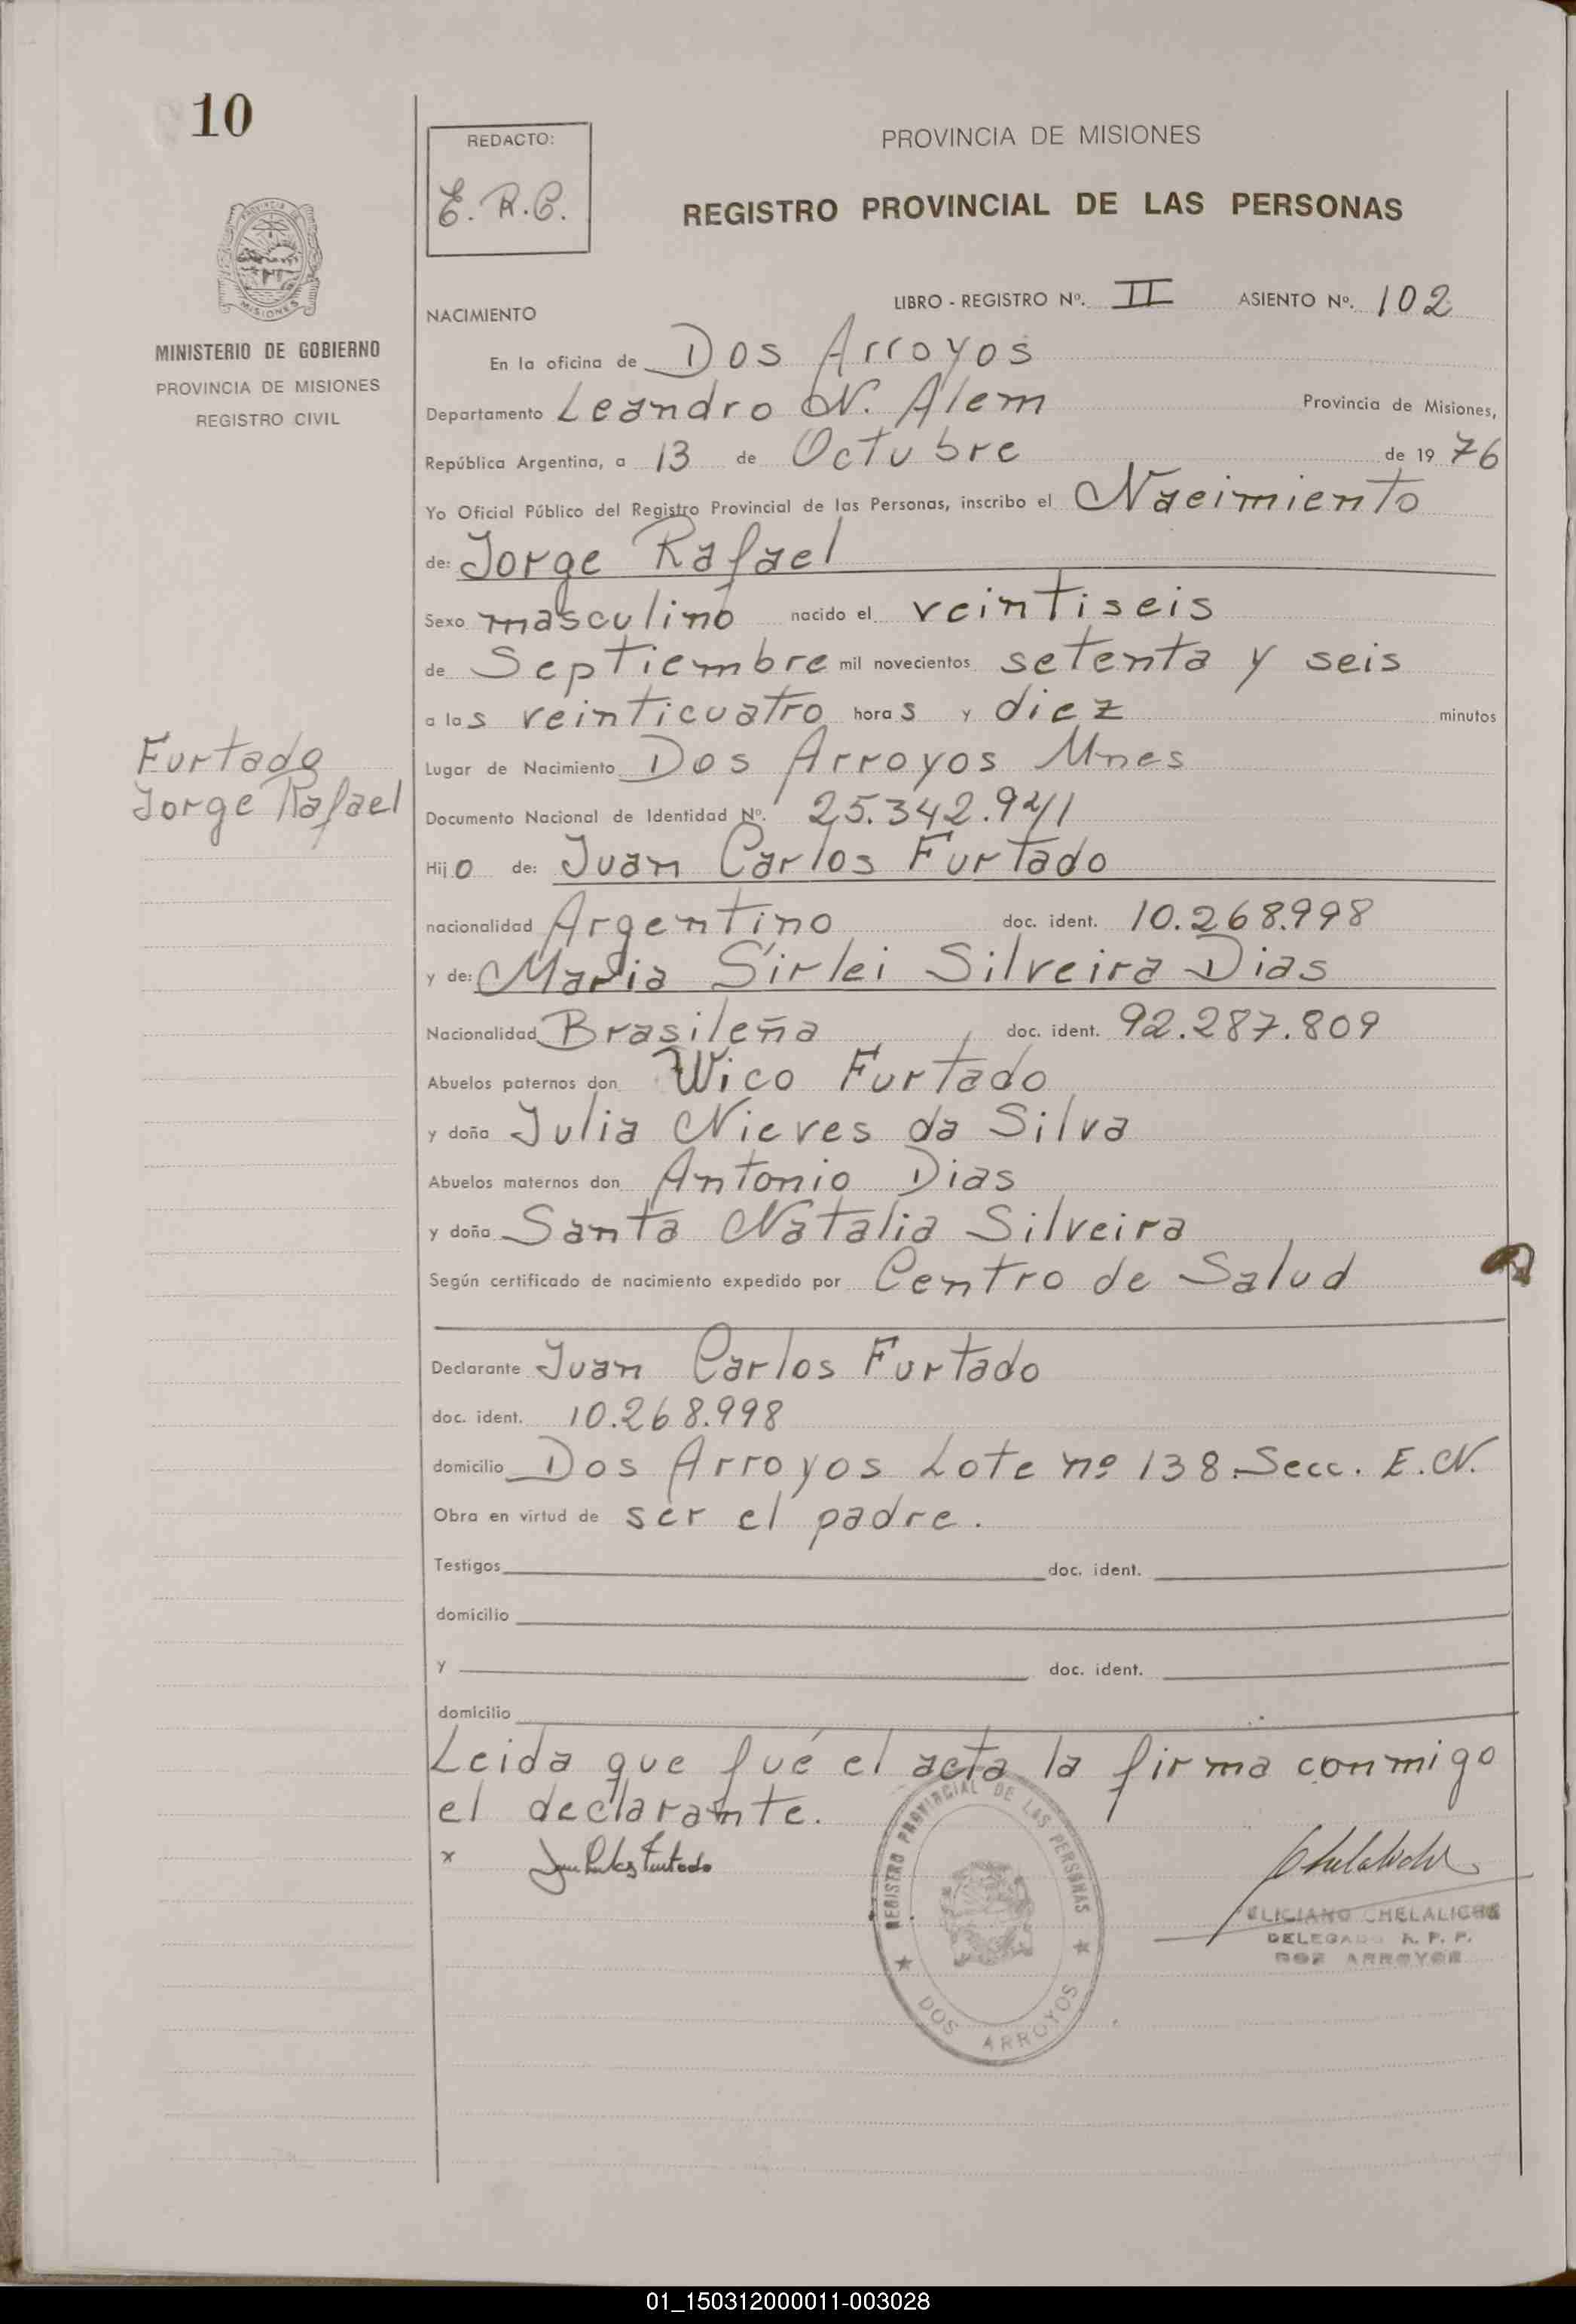 10
REDACTO:
E. R. C.
PROVINCIA DE MISIONES
REGISTRO PROVINCIAL DE LAS PERSONAS
PROVINCIA DE
MISIONES
MINISTERIO DE GOBIERNO
PROVINCIA DE MISIONES
REGISTRO CIVIL
LIBRO - REGISTRO Nº. II ASIENTO Nº. 102
NACIMIENTO
En la oficina de Dos Arroyos
Departamento Leandro N. Alem Provincia de Misiones,
República Argentina, a 13 de Octubre de 19 76
Yo Oficial Público del Registro Provincial de las Personas, inscribo el Nacimiento
de: Jorge Rafael
Sexo masculino nacido el veintiseis
de Septiembre mil novecientos setenta y seis
a las veinticuatro horas y diez minutos
Furtado
Jorge Rafael
Lugar de Nacimiento Dos Arroyos Mnes
Documento Nacional de Identidad Nº. 25.342.941
Hijo de: Juan Carlos Furtado
nacionalidad Argentino doc. ident. 10.268.998
y de: Maria Sirlei Silveira Dias
Nacionalidad Brasileña doc. ident. 92.287.809
Abuelos paternos don Wico Furtado
y doña Julia Nieves da Silva
Abuelos maternos don Antonio Dias
y doña Santa Natalia Silveira
Según certificado de nacimiento expedido por Centro de Salud
Declarante Juan Carlos Furtado
doc. ident. 10.268.998
domicilio Dos Arroyos Lote nº 138 Secc. E. N.
Obra en virtud de ser el padre.
Testigos doc. ident.
domicilio
y doc. ident.
domicilio
Leida que fué el acta la firma conmigo
el declarante.
x Juan Carlos Furtado
REGISTRO PROVINCIAL DE LAS PERSONAS
DOS ARROYOS
CHELALICHE
DELEGADO R. P. P.
DOS ARROYOS
01_150312000011-003028